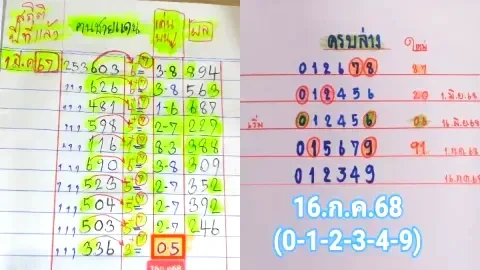 สถิติ
ปีที่แล้ว
คนชายแดน
เด่น
ผล
1.ม.ค 67
253603 6= 3-8 894
626 3-8 563
481 1-6 687
598 2-7 227
116 8-3 388
690 3-8 309
523 2-7 352
504 2-7 392
503 2-7 246
336 0-5
16.ก.ค.68
ครบล่าง
012678 87
012456 20 1.มิ.ย.68
เริ่ม 012456 06 16.มิ.ย.68
015679 91 1.ก.ค.68
012349 16.ก.ค.68
16.ก.ค.68
(0-1-2-3-4-9)